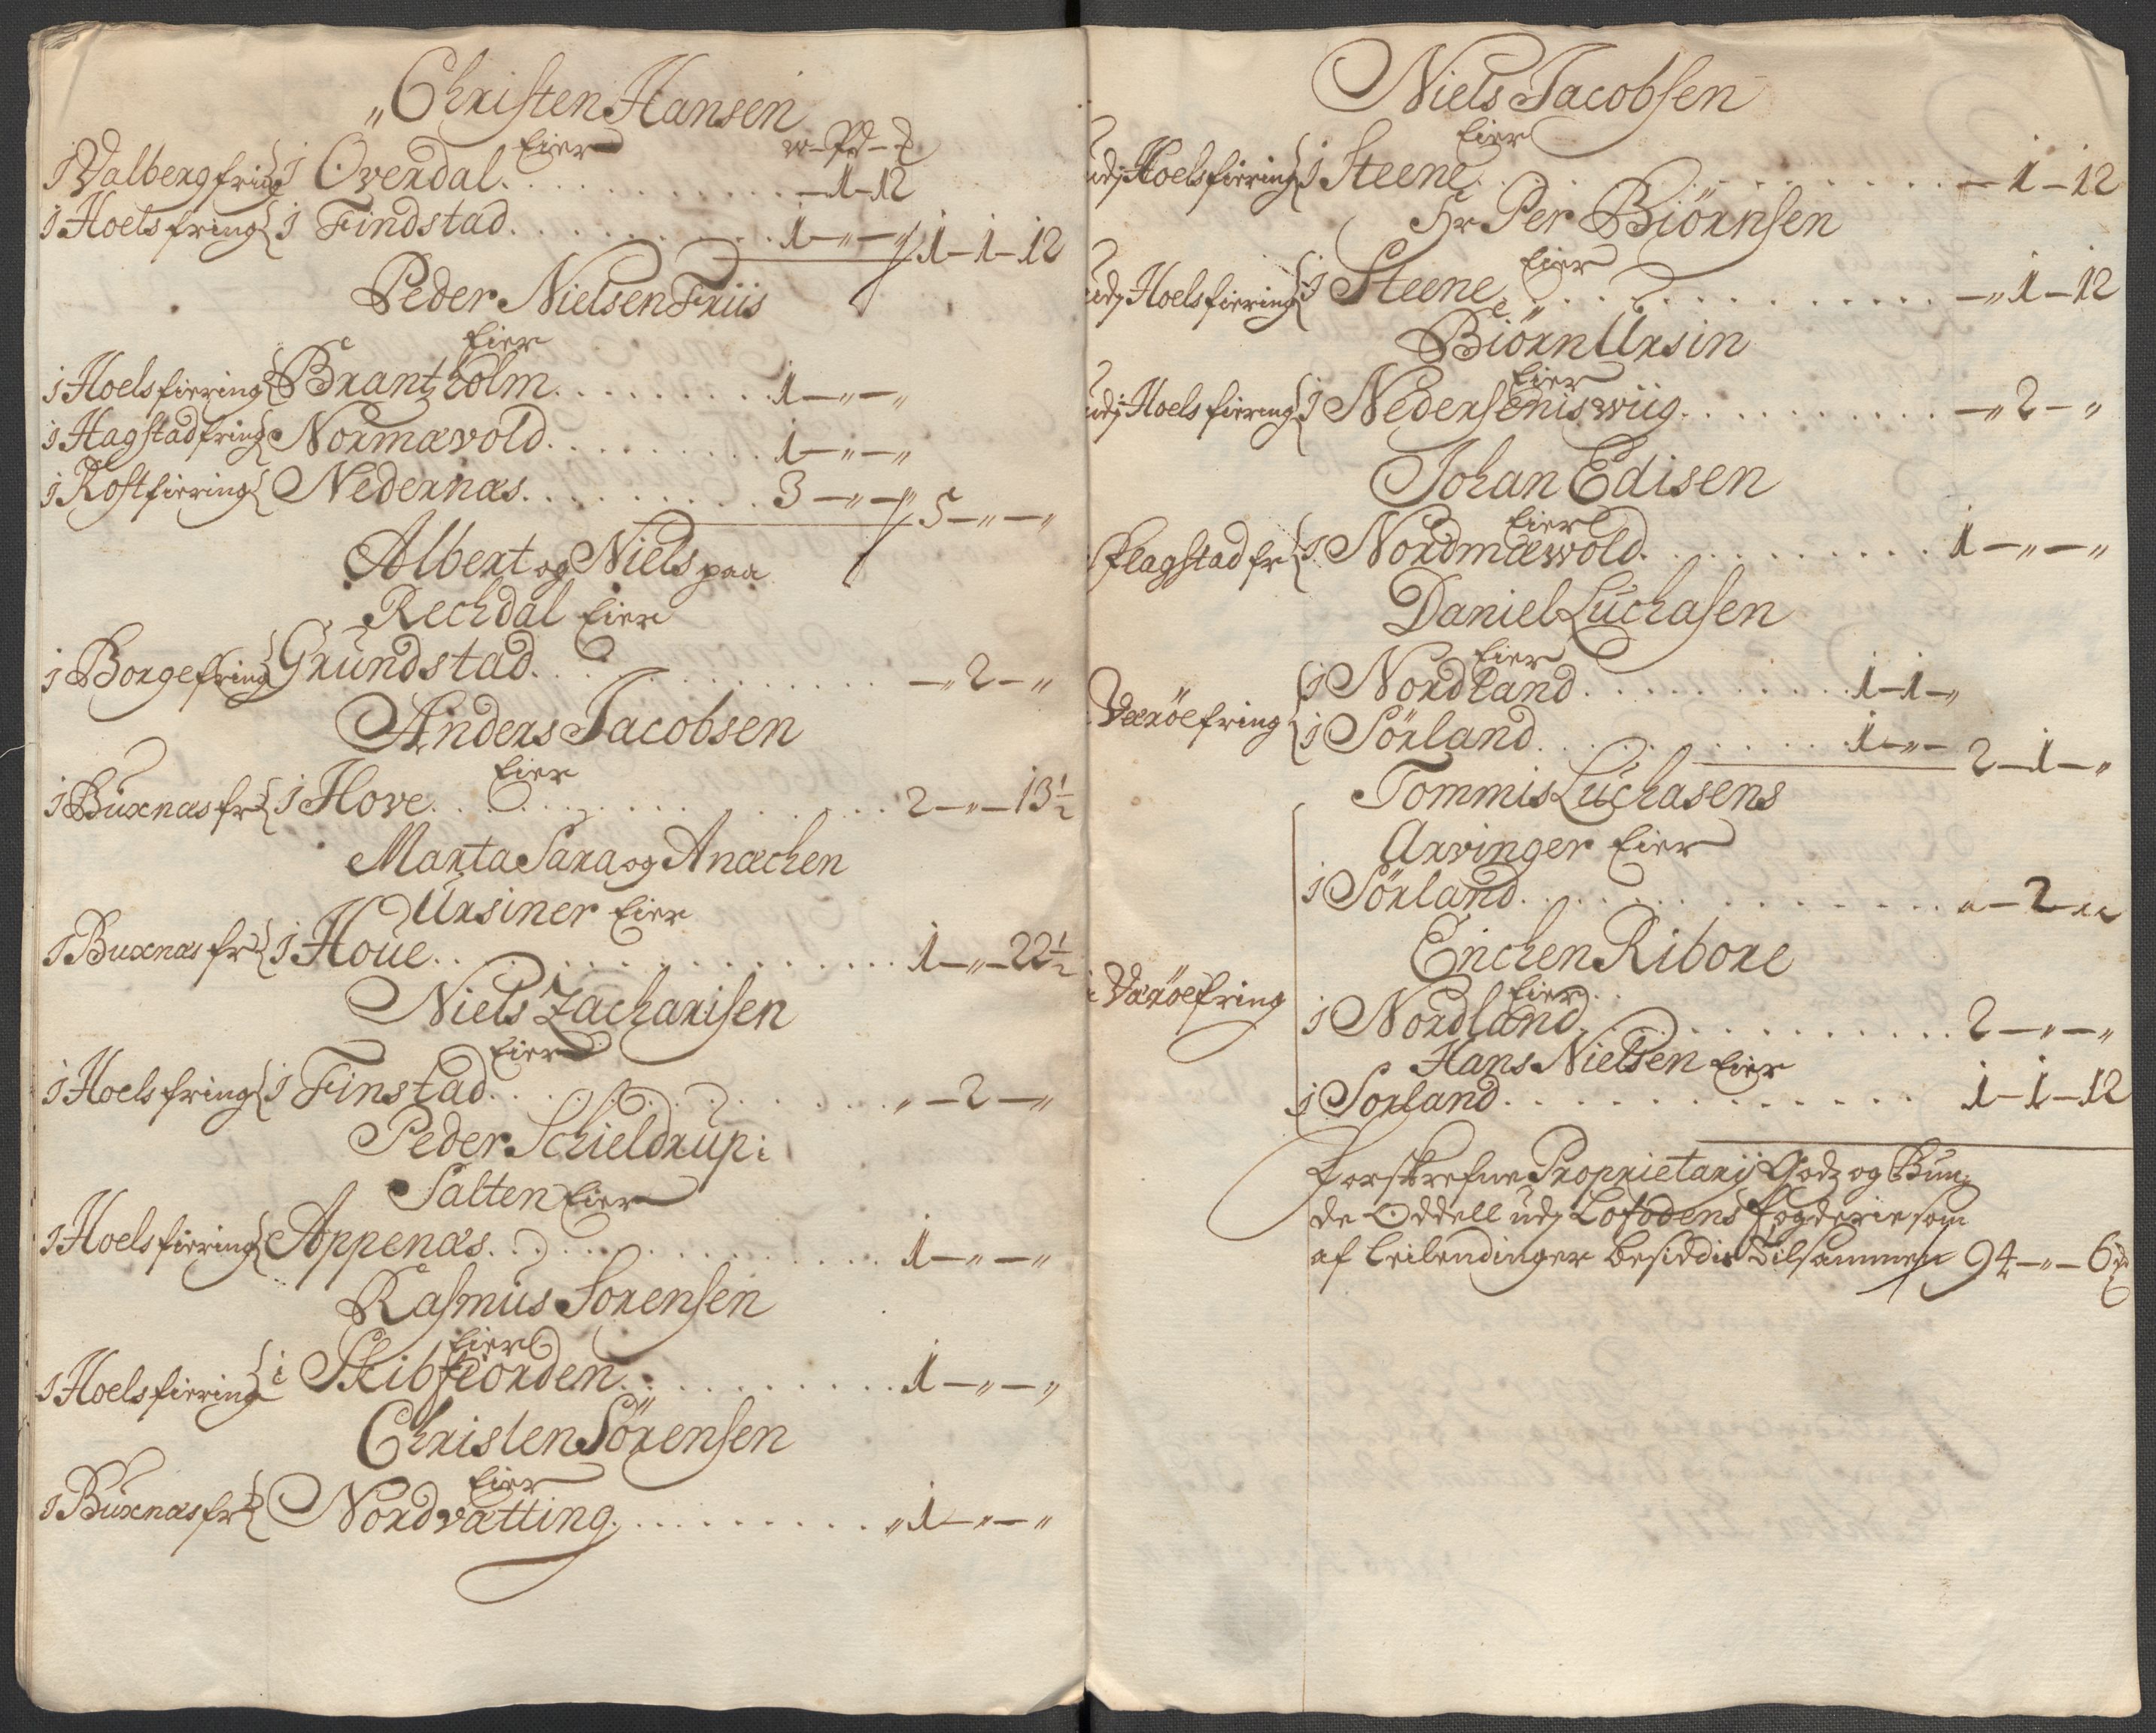 „Christen Hansen
Eier w - Pd - ₰
J Valbergfring J Overdal . . . - 1 - 12
J Hoelsfring J Findstad . . . 1 - „ - „ 1 - 1 - 12
Peder Nielsen Friis
Eier
J Hoelsfiering Brantzholm . . . 1 - „ - „
J Hagstadfring Normævold . . . 1 - „ - „
J Rostfiering Nedernæs . . . 3 - „ - „ 5 - „ - „
Albert og Niels paa
Rechdal Eier
J Borgefring Grundstad . . . - „ 2 - „
Anders Jacobsen
Eier
J Buxnæs fr J Hove . . . 2 - „ - 13½
Marta Sara og Anæchen
Ursiner Eier
J Buxnæs fr J Houe . . . 1 - „ - 22½
Niels Zacharisen
Eier
J Hoelsfring J Finstad . . . „ - 2 - „
Peder Schieldrup i
Salten Eier
J Hoelsfiering Appenæs . . . 1 - „ - „
Rasmus Sorensen
Eier
J Hoelsfiering i Skibfiorden . . . 1 - „ - „
Christen Sörensen
Eier
J Buxnæs fr Nordvætting . . . „ 1 - „ - „
Niels Jacobsen
Eier
udj Hoelsfiering J Steene . . . - 1 - 12
Hr Per Biörnsen
Eier
udj Hoelsfiering J Steene . . . - „ 1 - 12
Biörn Ursin
Eier
udj Hoelsfiering J Nedersemiswiig . . . - „ 2 - „
Johan Edisen
Eier
Flagstad fr J Nordmæwold . . . 1 - „ - „
Daniel Luchasen
Eier
J Nordland . . . 1 - 1 - „
Væröefring J Sörland . . . 1 - „ - 2 - 1 - „
Tommis Luchasens
Arvinger Eier
J Sörland . . . „ - 2 - „
Enchen Ribore
Eier
i Væröefring J Nordland . . . 2 - „ - „
Hans Nielsen Eier
J Sorland . . . 1 - 1 - 12
Forskrefne Proprietarij Godz og Bun-
de Oddell udj Lofodens fogderie som
af Leilendinger besiddis Tilsammen 94 - „ - 6